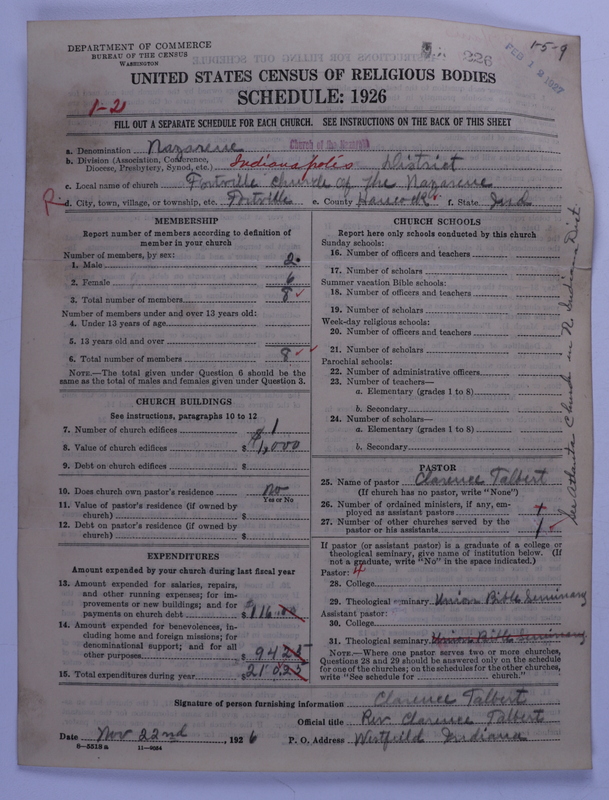 DEPARTMENT OF COMMERCE
BUREAU OF THE CENSUS
WASHINGTON
226
FEB 12 1927
1-5-9
UNITED STATES CENSUS OF RELIGIOUS BODIES
SCHEDULE: 1926
1-21
FILL OUT A SEPARATE SCHEDULE FOR EACH CHURCH. SEE INSTRUCTIONS ON THE BACK OF THIS SHEET
a. Denomination Nazarene Church of the Nazarene
b. Division (Association, Conference, Diocese, Presbytery, Synod, etc.) Indianapolis District
c. Local name of church Fortville Church of the Nazarene
R d. City, town, village, or township, etc. Fortville e. County Hancock f. State Ind
MEMBERSHIP
Report number of members according to definition of
member in your church
Number of members, by sex:
1. Male 2
2. Female 6
3. Total number of members 8
Number of members under and over 13 years old:
4. Under 13 years of age
5. 13 years old and over
6. Total number of members 8
NOTE.—The total given under Question 6 should be
the same as the total of males and females given under Question 3.
CHURCH BUILDINGS
See instructions, paragraphs 10 to 12
7. Number of church edifices 1
8. Value of church edifices $ $1,000
9. Debt on church edifices $
10. Does church own pastor's residence no
Yes or No
11. Value of pastor's residence (if owned by
church) $
12. Debt on pastor's residence (if owned by
church) $
EXPENDITURES
Amount expended by your church during last fiscal year
13. Amount expended for salaries, repairs,
and other running expenses; for im-
provements or new buildings; and for
payments on church debt $ 116.00
14. Amount expended for benevolences, in-
cluding home and foreign missions; for
denominational support; and for all
other purposes $ 94 25
15. Total expenditures during year $ 210.25
CHURCH SCHOOLS
Report here only schools conducted by this church
Sunday schools:
16. Number of officers and teachers
17. Number of scholars
Summer vacation Bible schools:
18. Number of officers and teachers
19. Number of scholars
Week-day religious schools:
20. Number of officers and teachers
21. Number of scholars
Parochial schools:
22. Number of administrative officers
23. Number of teachers—
a. Elementary (grades 1 to 8)
b. Secondary
24. Number of scholars—
a. Elementary (grades 1 to 8)
b. Secondary
PASTOR
25. Name of pastor Clarence Talbert
(If church has no pastor, write "None")
26. Number of ordained ministers, if any, em-
ployed as assistant pastors
27. Number of other churches served by the
pastor or his assistants 1
If pastor (or assistant pastor) is a graduate of a college or
theological seminary, give name of institution below. (If
not a graduate, write "No" in the space indicated.)
Pastor: 4
28. College
29. Theological seminary Union Bible Seminary
Assistant pastor:
30. College
31. Theological seminary Union Bible Seminary
NOTE.—Where one pastor serves two or more churches,
Questions 28 and 29 should be answered only on the schedule
for one of the churches; on the schedules for the other churches,
write "See schedule for church."
See Atlanta Church in N Indiana Dist.
Signature of person furnishing information Clarence Talbert
Official title Rev. Clarence Talbert
Date Nov 22nd, 1926 P. O. Address Westfield Indiana
8—5518 a 11—9024